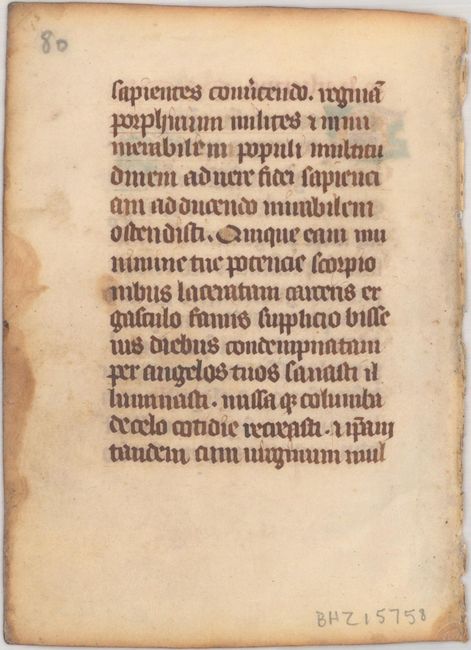 80
sapientes convͥtendo. reginā
porphirium milites ⁊ innu
merabilem populi multitu
dinem ad vere fidei sapienci
am adducendo mirabilem
ostendisti. Quinque eam mu
nimine tue potencie scorpio
nibus laceratam carceris er
gastulo famis supplicio bisse
nis diebus condempnatam
per angelos tuos sanasti il
luminasti. missa qꝫ columba
de celo cotidie recreasti. ⁊ ip̄am
tandem cum virginum mul
BHZ15758